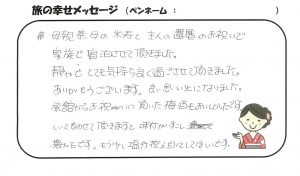 旅の幸せメッセージ （ペンネーム： ）
母親 の米寿と主人の還暦のお祝いで
家族で宿泊させて頂きました。
静かで とても気持ち良く過ごさせて頂きました。
ありがとうございます。良い思い出になりました。
お祝いに頂いた もおいしかったです
いて頂きますと 味付が少し
です。もう少し にしてほしいです。